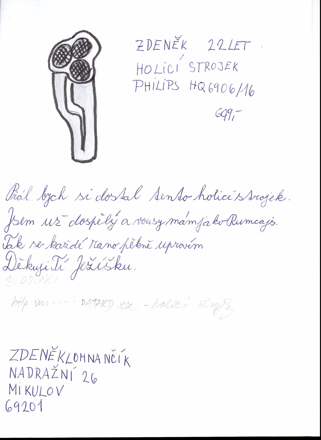 ZDENĚK 22 LET
HOLICÍ STROJEK
PHILIPS HQ6906/16
699,-
Přál bych si dostal tento holicí strojek.
Jsem už dospělý a vousy mám jako Rumcajs.
Tak se každé ráno pěkně upravím
Děkuji Ti Ježíšku.
ZDENĚK LOMNANČÍK
NADRAŽNÍ 26
MIKULOV
69201